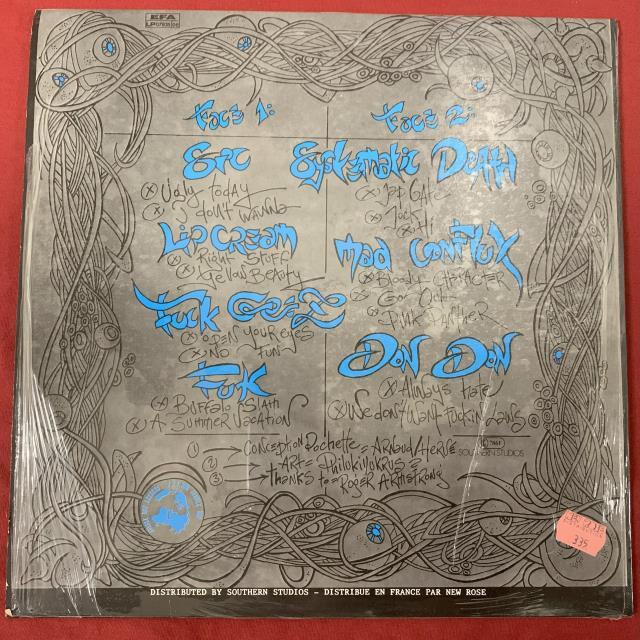 EFA
Face 1:
Face 2:
Gric
Ugly Today
I don't wanna
Lip Cream
Right Stuff
Yellow Beauty
Fuck Geez
Open your eyes
No Fun
Fu*k
Buffalo
A Summer Vacation
Systematic Death
Jap Gate
Jock
Hi
Mad Conflux
Bloody Character
Go Out
Pink Panther
Don Don
Always Hate
We don't want Fuckin Laws
1 Conception Pochette = Arnaud Hervé
2 Art = Philokilokrus =
3 Thanks to = Roger Armstrong
SOUTHERN STUDIOS
335
DISTRIBUTED BY SOUTHERN STUDIOS - DISTRIBUE EN FRANCE PAR NEW ROSE